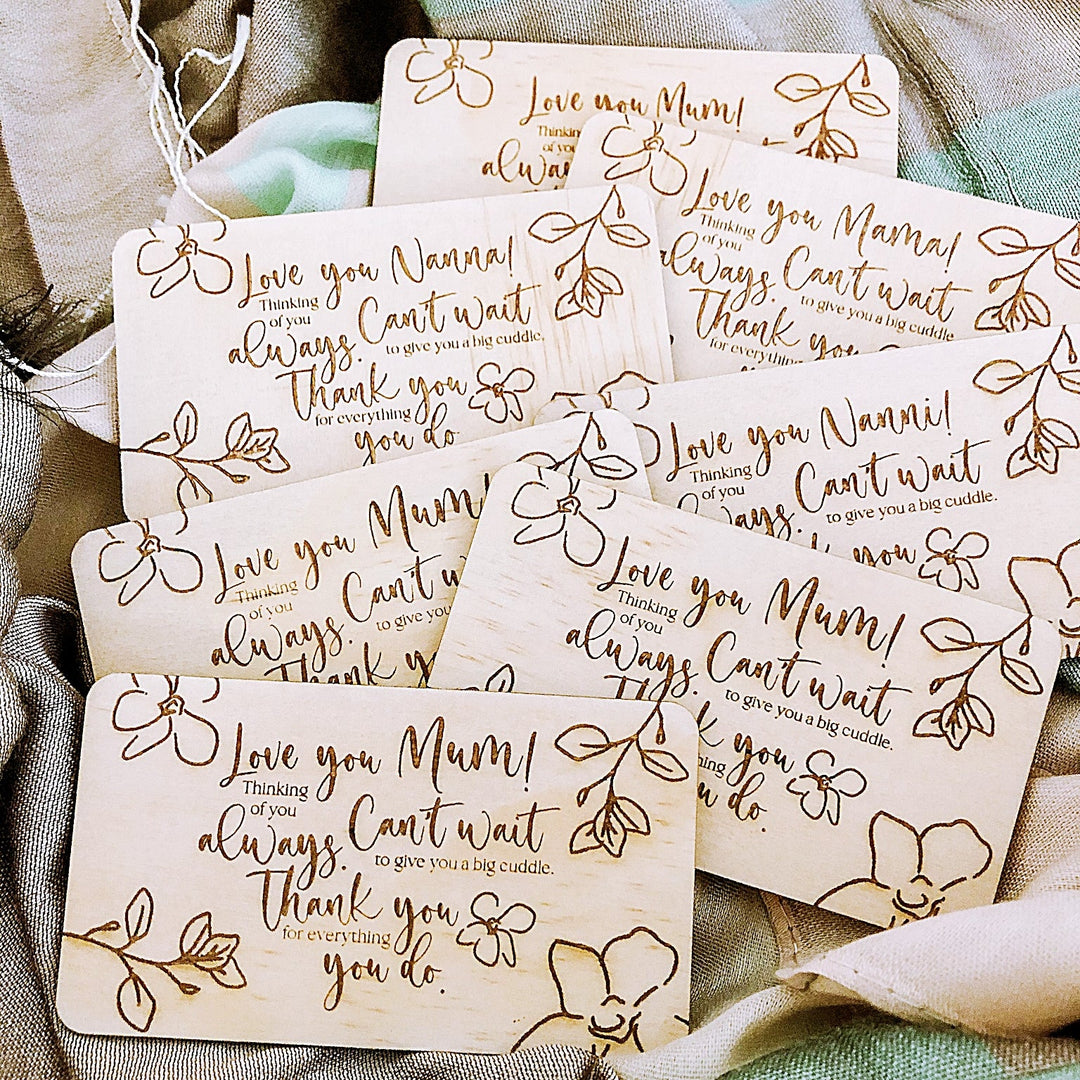 Love you Mum!
Thinking
of you
Love you Mama!
Thinking
of you
always. Can't wait
to give you a big cuddle.
Thank you
for everything
Love you Nanna!
Thinking
of you
always. Can't wait
to give you a big cuddle.
Thank you
for everything
you do
Love you Nanni!
Thinking
of you
always. Can't wait
to give you a big cuddle.
you
Love you Mum!
Thinking
of you
always. Can't w
to give you
Thank y
Love you Mum!
Thinking
of you
always. Can't wait
to give you a big cuddle.
you
do.
Love you Mum!
Thinking
of you
always. Can't wait
to give you a big cuddle.
Thank you
for everything
you do.